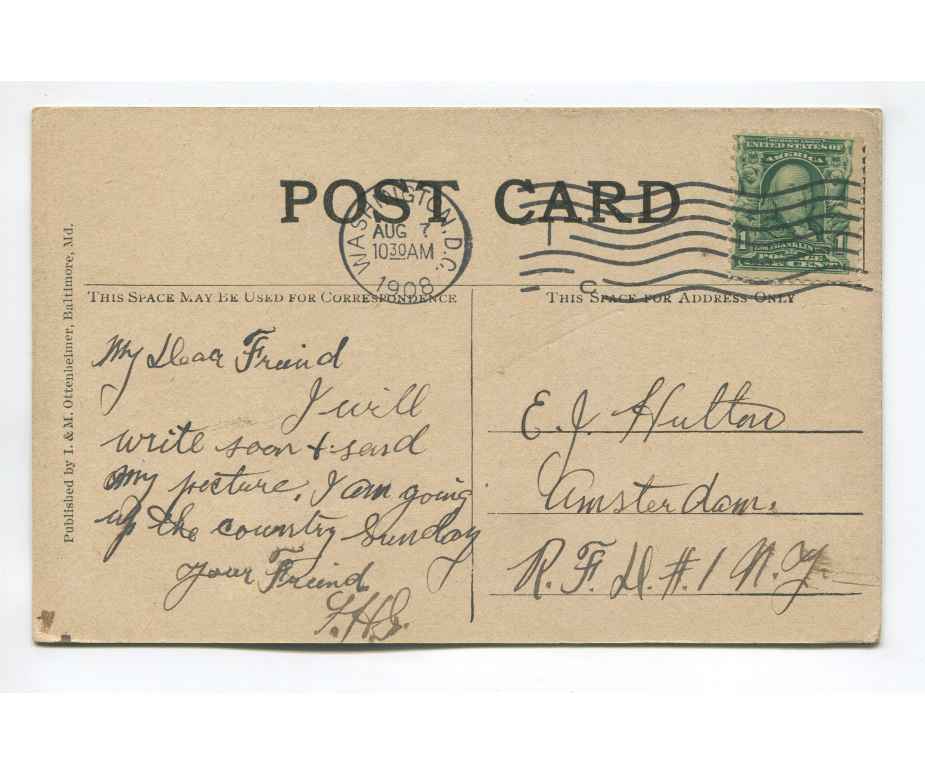 POST CARD
WASHINGTON, D.C.
AUG 7
10 30 AM
1908
UNITED STATES OF
AMERICA
1 FRANKLIN 1
POSTAGE
THIS SPACE MAY BE USED FOR CORRESPONDENCE
THIS SPACE FOR ADDRESS ONLY
Published by I. & M. Ottenheimer, Baltimore, Md.
My Dear Freind
I will
write soon & send
my pecture. I am going
up the country Sunday
your Freind
E. J. Hulton
Amsterdam.
R. F. D. #. 1 N. Y.